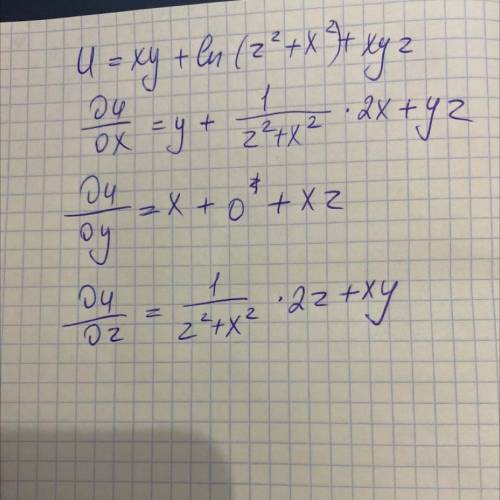 U = xy + ln(z² + x²) + xyz
∂u/∂x = y + 1/(z² + x²) · 2x + yz
∂u/∂y = x + 0 + xz
∂u/∂z = 1/(z² + x²) · 2z + xy